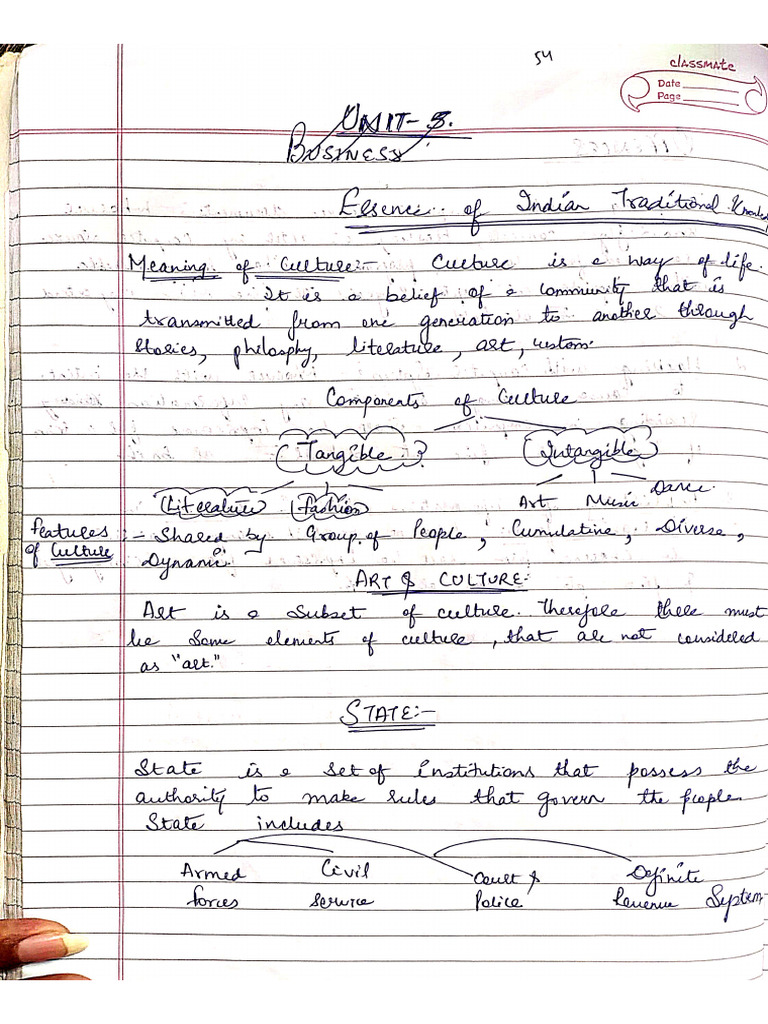 54
classmate
Date
Page
UNIT-5.
BUSINESS
Essence of Indian Traditional
Meaning of Culture:- Culture is a way of life.
It is a belief of a community that is
transmitted from one generation to another through
stories, philosphy, literature, art, custom.
Components of Culture
Tangible Intangible
Literature Fashion Art Music Dance
Features of Culture :- Shared by Group of People, Cumulative, Diverse,
Dynamic
ART & CULTURE:
Art is a subset of culture. Therefore there must
be some elements of culture, that are not considered
as "art."
STATE:-
State is a set of institutions that possess the
authority to make rules that govern the people
State includes
Armed Civil Court & Definite
forces service Police Revenue System